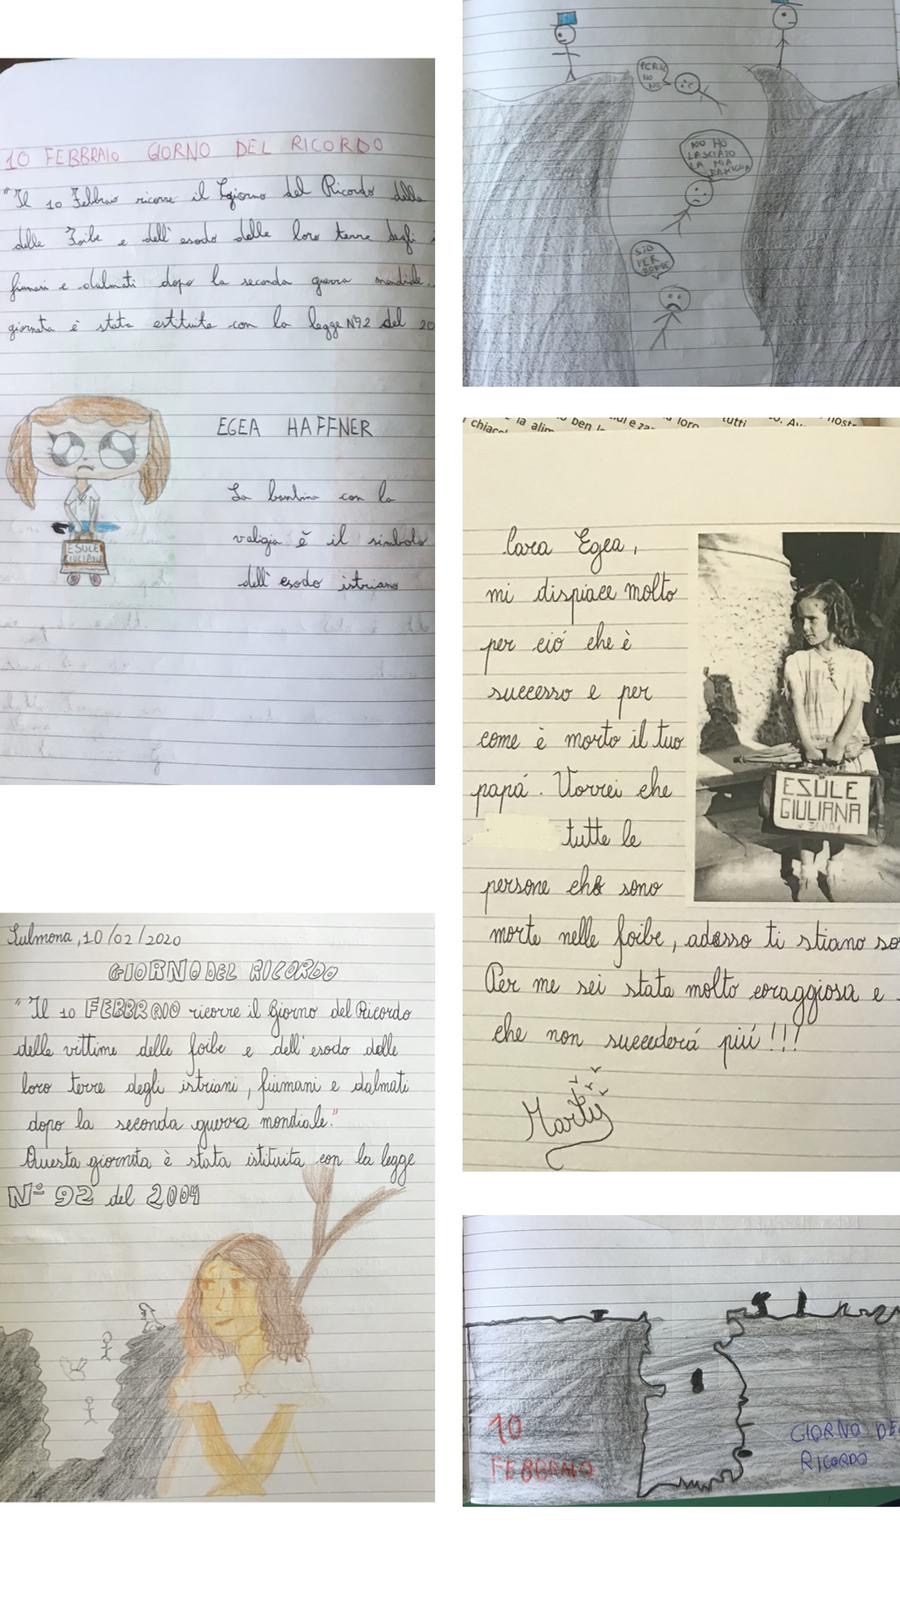 10 FEBBRAIO GIORNO DEL RICORDO
"Il 10 Febbraio ricorre il Ggiorno del Ricordo delle
delle Foibe e dell'esodo delle loro terre degli
fiumani e dalmati dopo la seconda guerra mondiale.
giornata è stata istituita con la legge N°92 del 20
EGEA HAFFNER
La bambina con la
valigia è il simbolo
dell'esodo istriano
ESULE
GIULIANA
NO NO
NO HO
LASCIATO
LA MIA
FAMIGLIA
PER
chiacc
la alim
ben
loro
tutti
Cara Egea,
mi dispiace molto
per ció che è
successo e per
come è morto il tuo
papá. Vorrei che
tutte le
persone che sono
morte nelle foibe, adesso ti stiano so
Per me sei stata molto coraggiosa e
che non succederá piú!!!
Marty
ESULE
GIULIANA
Sulmona, 10/02/2020
GIORNO DEL RICORDO
"Il 10 FEBBRAIO ricorre il Giorno del Ricordo
delle vittime delle foibe e dell'esodo dalle
loro terre degli istriani, fiumani e dalmati
dopo la seconda guerra mondiale."
Questa giornata è stata istituita con la legge
N° 92 del 2004
10
FEBBRAIO
GIORNO DE
RICORDO